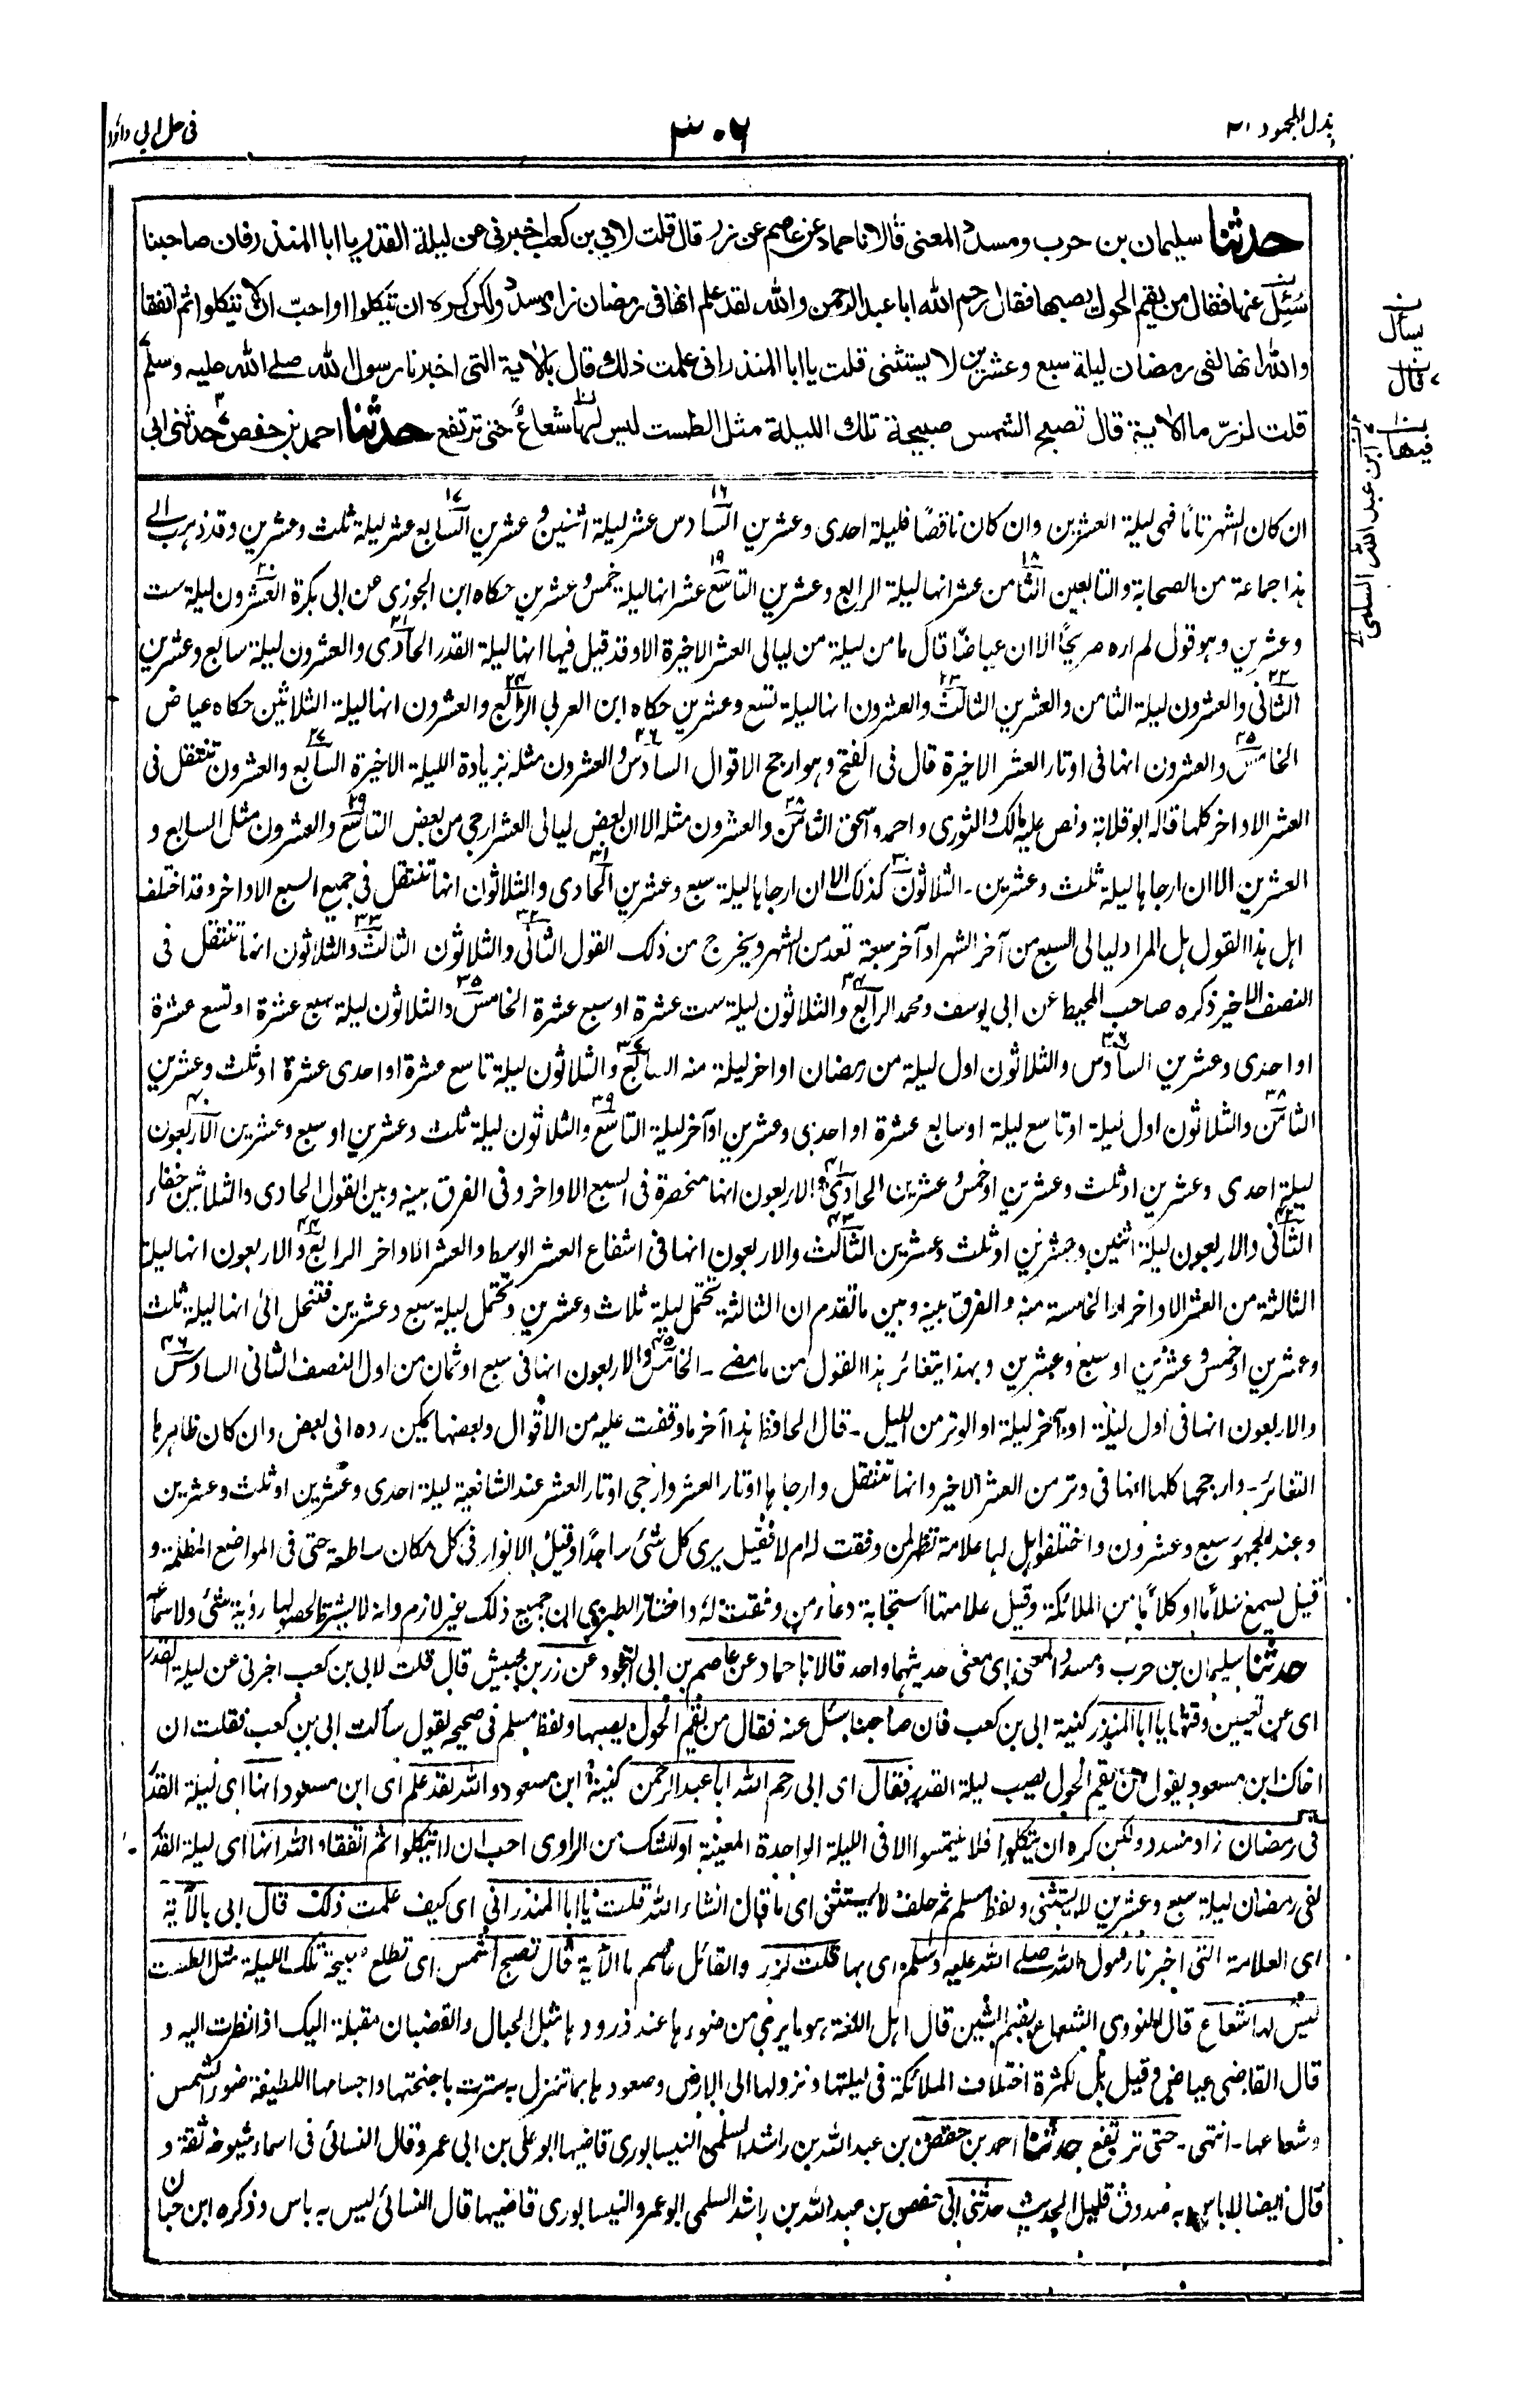 بذل المجهود ۳
۳۰۶
فی حل ابی داؤد
حدثنا سلیمان بن حرب ومسدد المعنی قالا نا حماد عن عاصم عن زر قال قلت لابی بن کعب اخبرنی عن لیلة القدر یا ابا المنذر فان صاحبنا
سُئِل عنها فقال من یقم الحول یصبها فقال رحم الله ابا عبد الرحمن والله لقد علم انها فی رمضان زاد مسدد ولکن کره ان یتکلوا او احبّ ان لا یتکلوا ثم اتفقا
والله انها لفی رمضان لیلة سبع وعشرین لا یستثنی قلت یا ابا المنذر انی علمت ذلك قال بالآیة التی اخبرنا رسول الله صلی الله علیه وسلم
قلت لزرّ ما الآیة قال تصبح الشمس صبیحة تلك اللیلة مثل الطست لیس لها شعاعٌ حتی ترتفع حدثنا احمد بن حفص حدثنی ابی
یسأل
قال
فیها
ابن عبد الله السلمی
ان کان الشهر تامًا فهی لیلة العشرین وان کان ناقصًا فلیلة احدی وعشرین السادس عشر لیلة اثنین وعشرین السابع عشر لیلة ثلث وعشرین وقد ذهب الی
هذا جماعة من الصحابة والتابعین الثامن عشر انها لیلة الرابع وعشرین التاسع عشر انها لیلة خمس وعشرین حکاه ابن الجوزی عن ابی بکرة العشرون لیلة ست
وعشرین وهو قول لم اره صریحًا الا ان عیاضًا قال ما من لیلة من لیالی العشر الاخیرة الا وقد قیل فیها انها لیلة القدر الحادی والعشرون لیلة سابع وعشرین
الثانی والعشرون لیلة الثامن والعشرین الثالث والعشرون انها لیلة تسع وعشرین حکاه ابن العربی الرابع والعشرون انها لیلة الثلاثین حکاه عیاض
الخامس والعشرون انها فی اوتار العشر الاخیرة قال فی الفتح وهو ارجح الاقوال السادس والعشرون مثله بزیادة اللیلة الاخیرة السابع والعشرون تنتقل فی
العشر الاواخر کلها قاله ابو قلابة ونص علیه مالک والثوری واحمد واسحق الثامن والعشرون مثله الا ان بعض لیالی العشر ارجی من بعض التاسع والعشرون مثل السابع و
العشرین الا ان ارجاها لیلة ثلث وعشرین - الثلاثون کذلک الا ان ارجاها لیلة سبع وعشرین الحادی والثلاثون انها تنتقل فی جمیع السبع الاواخر وقد اختلف
اهل هذا القول هل المراد لیالی السبع من آخر الشهر او آخر سبعة تعد من الشهر ویخرج من ذلک القول الثانی والثلاثون الثالث والثلاثون انها تنتقل فی
النصف الاخیر ذکره صاحب المحیط عن ابی یوسف ومحمد الرابع والثلاثون لیلة ست عشرة او سبع عشرة الخامس والثلاثون لیلة سبع عشرة او تسع عشرة
او احدی وعشرین السادس والثلاثون اول لیلة من رمضان او اخر لیلة منه السابع والثلاثون لیلة تاسع عشرة او احدی عشرة او ثلث وعشرین
الثامن والثلاثون اول لیلة او تاسع لیلة او سابع عشرة او احدی وعشرین او آخر لیلة التاسع والثلاثون لیلة ثلث وعشرین او سبع وعشرین الاربعون
لیلة احدی وعشرین او ثلث وعشرین او خمس وعشرین الحادی والاربعون انها منحصرة فی السبع الاواخر وفی الفرق بینه وبین القول الحادی والثلاثین خفاء
الثانی والاربعون لیلة اثنین وعشرین او ثلث وعشرین الثالث والاربعون انها فی اشفاع العشر الوسط والعشر الاواخر الرابع والاربعون انها لیلة
الثالثة من العشر الاواخر او الخامسة منه والفرق بینه وبین ما تقدم ان الثالثة تحتمل لیلة ثلاث وعشرین وتحتمل لیلة سبع وعشرین فتنحل الی انها لیلة ثلث
وعشرین او خمس وعشرین او سبع وعشرین وبهذا یتغائر هذا القول من ما مضے - الخامس والاربعون انها فی سبع او ثمان من اول النصف الثانی السادس
والاربعون انها فی اول لیلة او آخر لیلة او الوتر من اللیل - قال الحافظ هذا آخر ما وقفت علیه من الاقوال وبعضها یمکن رده الی بعض وان کان ظاهرها
التغائر - وارجحها کلها انها فی وتر من العشر الاخیر وانها تنتقل وارجاها اوتار العشر وارجی اوتار العشر عند الشافعیة لیلة احدی وعشرین او ثلث وعشرین
وعند الجمهور سبع وعشرون واختلفوا هل لها علامة تظهر لمن وفقت له ام لا فقیل یری کل شئ ساجدًا وقیل الانوار فی کل مکان ساطعة حتی فی المواضع المظلمة و
قیل یسمع سلامًا او کلامًا من الملائکة وقیل علامتها استجابة دعاء من وفقت له واختار الطبری ان جمیع ذلک غیر لازم وانه لا یشترط لحصولها رؤیة شئ ولا سماعه
حدثنا سلیمان بن حرب ومسدد المعنی ای معنی حدیثهما واحد قالا نا حماد عن عاصم بن ابی النجود عن زر بن حبیش قال قلت لابی بن کعب اخبرنی عن لیلة القدر
ای عن تعیین وقتها یا ابا المنذر کنیة ابی بن کعب فان صاحبنا سئل عنه فقال من یقم الحول یصبها ولفظ مسلم فی صحیحه یقول سألت ابی بن کعب فقلت ان
اخاک ابن مسعود یقول من یقم الحول یصب لیلة القدر فقال ای ابی رحم الله ابا عبد الرحمن کنیة ابن مسعود والله لقد علم ای ابن مسعود انها ای لیلة القدر
فی رمضان زاد مسدد ولکن کره ان یتکلوا فلا یلتمسوا الا فی اللیلة الواحدة المعینة او للشک من الراوی احب ان لا یتکلوا ثم اتفقا والله انها ای لیلة القدر
لفی رمضان لیلة سبع وعشرین لا یستثنی ولفظ مسلم ثم حلف لا یستثنی ای ما قال انشاء الله قلت یا ابا المنذر انی ای کیف علمت ذلک قال ابی بالآیة
ای العلامة التی اخبرنا رسول الله صلی الله علیه وسلم ای بها قلت لزر والقائل عاصم ما الآیة قال تصبح الشمس ای تطلع صبیحة تلک اللیلة مثل الطست
لیس لها شعاع قال النووی الشعاع بضم الشین قال اهل اللغة هو ما یری من ضوءها عند ذرورها مثل الحبال والقضبان مقبلة الیک اذا نظرت الیه و
قال القاضی عیاض وقیل بل لکثرة اختلاف الملائکة فی لیلتها ونزولها الی الارض وصعودها بما تتنزل به سترت باجنحتها واجسامها اللطیفة ضوء الشمس
وشعاعها - انتهی - حتی ترتفع حدثنا احمد بن حفص بن عبد الله بن راشد السلمی النیسابوری قاضیها ابو علی بن ابی عمرو قال النسائی فی اسماء شیوخه ثقة و
قال ایضا لا باس به صدوق قلیل الحدیث حدثنی ابی حفص بن عبد الله بن راشد السلمی ابو عمرو النیسابوری قاضیها قال النسائی لیس به باس وذکره ابن حبان